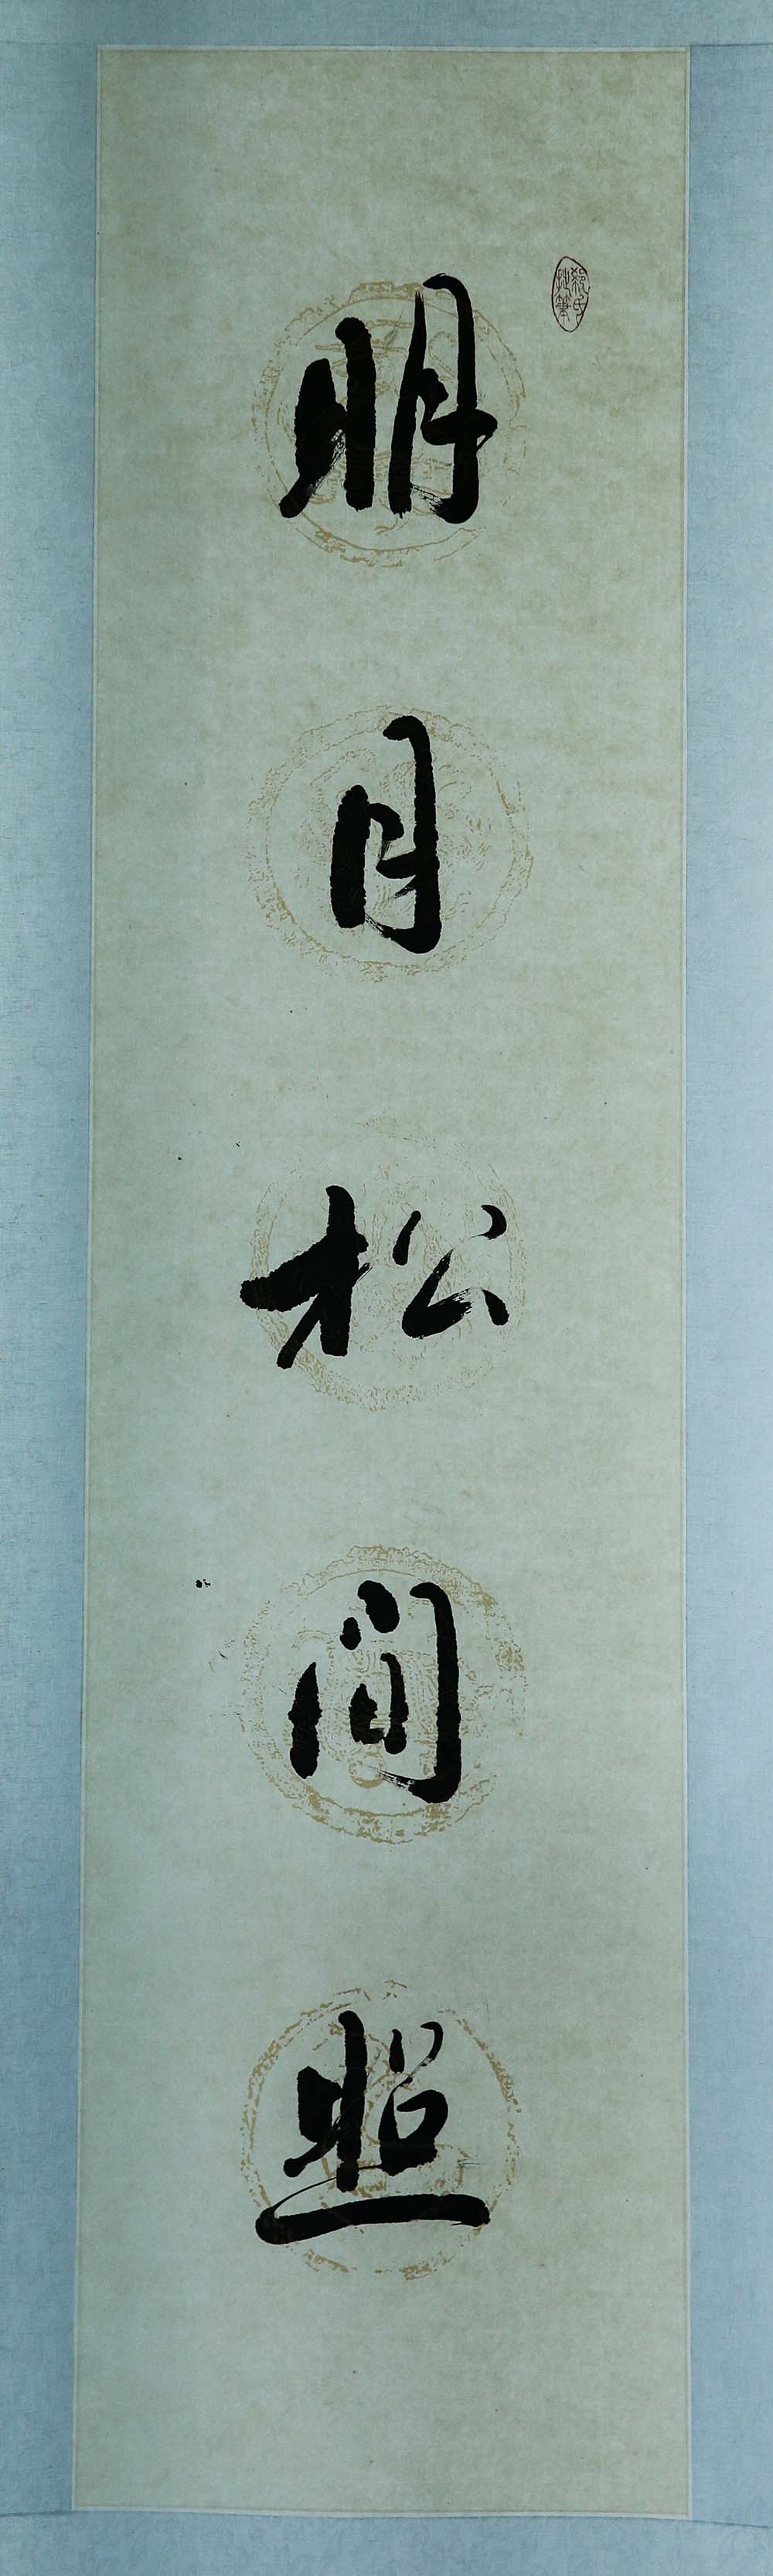 明月松间照